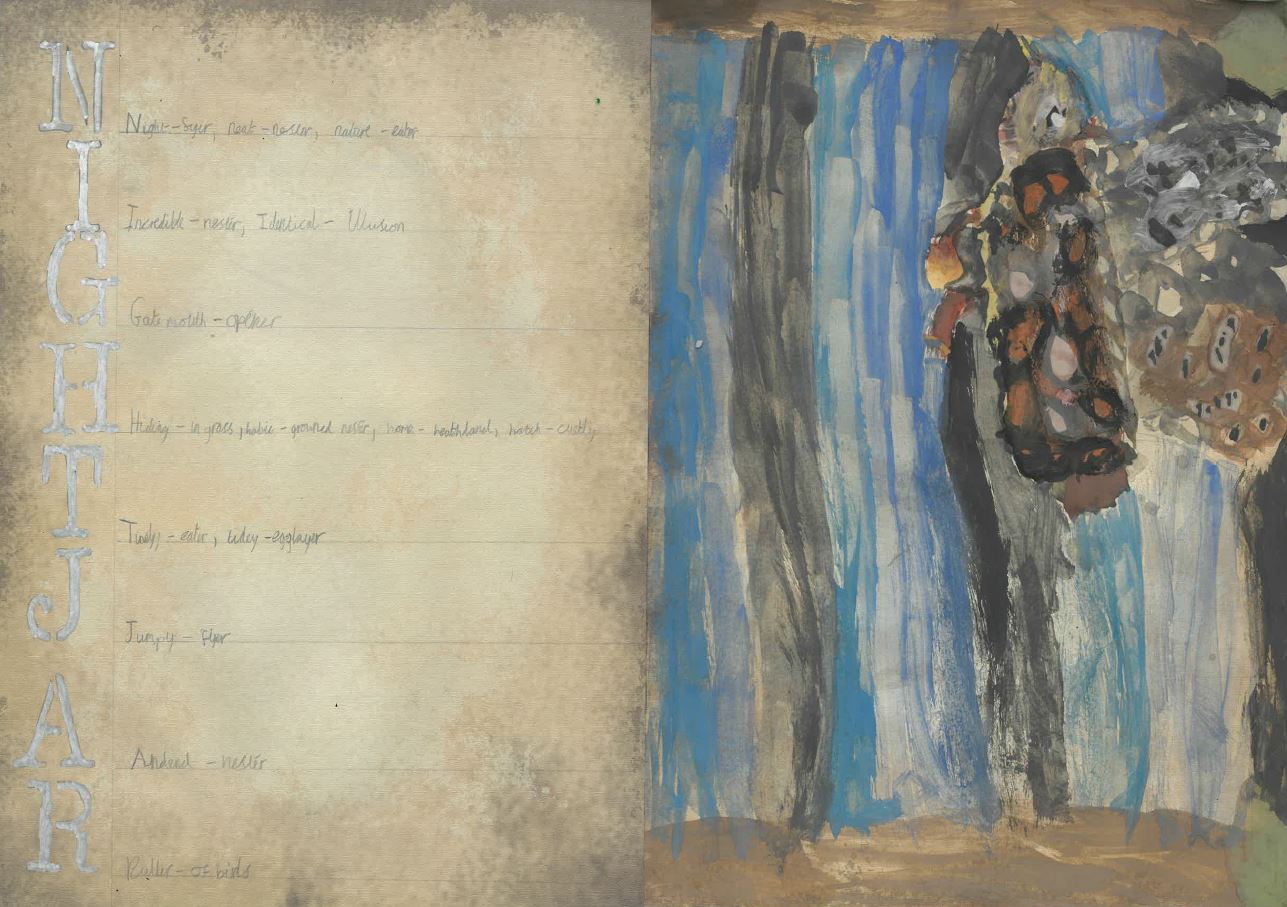 NIGHTJAR
Night-flyer, neat-nester, nature-eater
Incredible - nester, Identical - Illusion
Gate mouth - opener
Hiding - in grass, habie - grouned nester, home - heathland, hatch - cuddly
Tiney - eater, tidey - egglayer
Jumpy - flyer
Andend - nester
Ruller - of birds